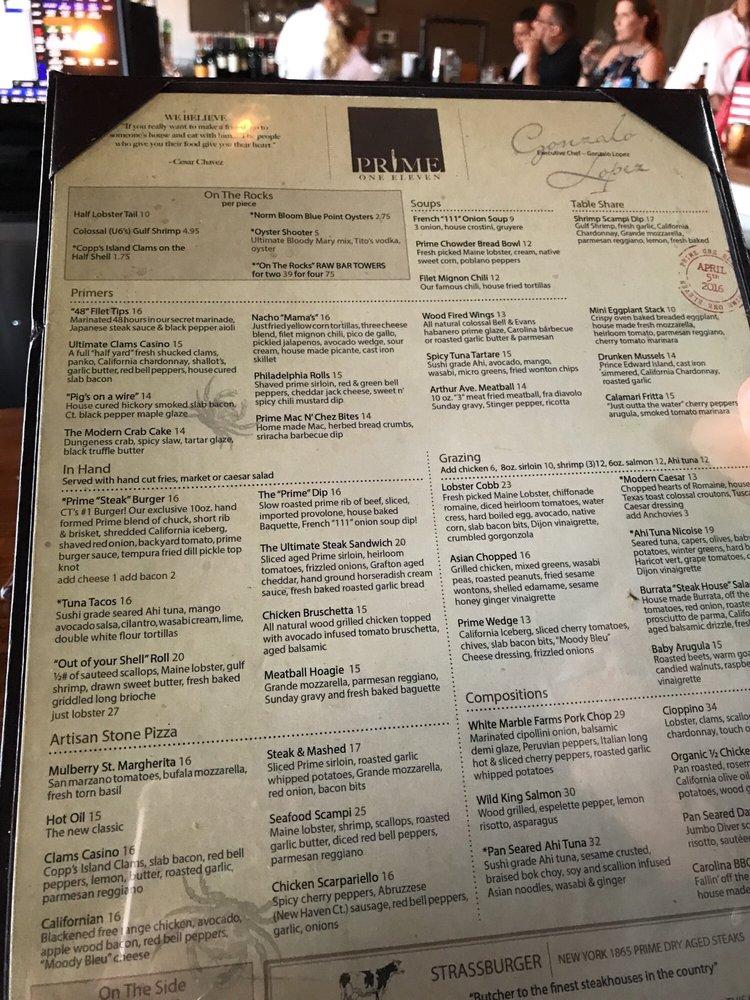 WE BELIEVE
"If you really want to make a friend, go to
someone's house and eat with him... The people
who give you their food give you their heart."
~Cesar Chavez
PRIME
ONE ELEVEN
Gonzalo
Executive Chef ~ Gonzalo Lopez
Lopez
On The Rocks
per piece
Half Lobster Tail 10
Colossal (U6's) Gulf Shrimp 4.95
*Copp's Island Clams on the
Half Shell 1.75
*Norm Bloom Blue Point Oysters 2.75
*Oyster Shooter 5
Ultimate Bloody Mary mix, Tito's vodka,
oyster
*"On The Rocks" RAW BAR TOWERS
for two 39 for four 75
Soups
French "111" Onion Soup 9
3 onion, house crostini, gruyere
Prime Chowder Bread Bowl 12
Fresh picked Maine lobster, cream, native
sweet corn, poblano peppers
Filet Mignon Chili 12
Our famous chili, house fried tortillas
Table Share
Shrimp Scampi Dip 17
Gulf Shrimp, fresh garlic, California
Chardonnay, Grande mozzarella,
parmesan reggiano, lemon, fresh baked
APRIL
5th
2016
Primers
*"48" Filet Tips 16
Marinated 48 hours in our secret marinade,
Japanese steak sauce & black pepper aioli
Ultimate Clams Casino 15
A full "half yard" fresh shucked clams,
panko, California chardonnay, shallot's,
garlic butter, red bell peppers, house cured
slab bacon
"Pig's on a wire" 14
House cured hickory smoked slab bacon,
Ct. black pepper maple glaze
The Modern Crab Cake 14
Dungeness crab, spicy slaw, tartar glaze,
black truffle butter
Nacho "Mama's" 16
Just fried yellow corn tortillas, three cheese
blend, filet mignon chili, pico de gallo,
pickled jalapenos, avocado wedge, sour
cream, house made picante, cast iron
skillet
Philadelphia Rolls 15
Shaved prime sirloin, red & green bell
peppers, cheddar jack cheese, sweet n'
spicy chili mustard dip
Prime Mac N' Chez Bites 14
Home made Mac, herbed bread crumbs,
sriracha barbecue dip
Wood Fired Wings 13
All natural colossal Bell & Evans
habanero prime glaze, Carolina barbecue
or roasted garlic butter & parmesan
Spicy Tuna Tartare 15
Sushi grade Ahi, avocado, mango,
wasabi, micro greens, fried wonton chips
Arthur Ave. Meatball 14
10 oz. "3" meat fried meatball, fra diavolo
Sunday gravy, Stinger pepper, ricotta
Mini Eggplant Stack 10
Crispy oven baked breaded eggplant,
house made fresh mozzarella,
heirloom tomato, parmesan reggiano,
cherry tomato marinara
Drunken Mussels 14
Prince Edward Island, cast iron
simmered, California Chardonnay,
roasted garlic
Calamari Fritta 15
"Just outta the water" cherry peppers
arugula, smoked tomato marinara
In Hand
Served with hand cut fries, market or caesar salad
*Prime "Steak" Burger 16
CT's #1 Burger! Our exclusive 10oz. hand
formed Prime blend of chuck, short rib
& brisket, shredded California iceberg,
shaved red onion, backyard tomato, prime
burger sauce, tempura fried dill pickle top
knot
add cheese 1 add bacon 2
*Tuna Tacos 16
Sushi grade seared Ahi tuna, mango
avocado salsa, cilantro, wasabi cream, lime,
double white flour tortillas
"Out of your Shell" Roll 20
½# of sauteed scallops, Maine lobster, gulf
shrimp, drawn sweet butter, fresh baked
griddled long brioche
just lobster 27
The "Prime" Dip 16
Slow roasted prime rib of beef, sliced,
imported provolone, house baked
Baquette, French "111" onion soup dip!
The Ultimate Steak Sandwich 20
Sliced aged Prime sirloin, heirloom
tomatoes, frizzled onions, Grafton aged
cheddar, hand ground horseradish cream
sauce, fresh baked roasted garlic bread
Chicken Bruschetta 15
All natural wood grilled chicken topped
with avocado infused tomato bruschetta,
aged balsamic
Meatball Hoagie 15
Grande mozzarella, parmesan reggiano,
Sunday gravy and fresh baked baguette
Grazing
Add chicken 6, 8oz. sirloin 10, shrimp (3)12, 6oz. salmon 12, Ahi tuna 12
Lobster Cobb 23
Fresh picked Maine Lobster, chiffonade
romaine, diced heirloom tomatoes, water
cress, hard boiled egg, avocado, native
corn, slab bacon bits, Dijon vinaigrette,
crumbled gorgonzola
Asian Chopped 16
Grilled chicken, mixed greens, wasabi
peas, roasted peanuts, fried sesame
wontons, shelled edamame, sesame
honey ginger vinaigrette
Prime Wedge 13
California Iceberg, sliced cherry tomatoes,
chives, slab bacon bits, "Moody Bleu"
Cheese dressing, frizzled onions
*Modern Caesar 13
Chopped hearts of Romaine, house
Texas toast colossal croutons, Tusc
Caesar dressing
add Anchovies 3
*Ahi Tuna Nicoise 19
Seared tuna, capers, olives, bab
potatoes, winter greens, hard b
Haricot vert, grape tomatoes, c
Dijon vinaigrette
Burrata "Steak House" Sala
House made Burrata, off the
tomatoes, red onion, roaste
prosciutto de parma, Califo
aged balsamic drizzle, fres
Baby Arugula 15
Roasted beets, warm goa
candied walnuts, raspbe
vinaigrette
Artisan Stone Pizza
Mulberry St. Margherita 16
San marzano tomatoes, bufala mozzarella,
fresh torn basil
Hot Oil 15
The new classic
Clams Casino 16
Copp's Island Clams, slab bacon, red bell
peppers, lemon, butter, roasted garlic,
parmesan reggiano
Californian 16
Blackened free range chicken, avocado,
apple wood bacon, red bell peppers,
"Moody Bleu" cheese
Steak & Mashed 17
Sliced Prime sirloin, roasted garlic
whipped potatoes, Grande mozzarella,
red onion, bacon bits
Seafood Scampi 25
Maine lobster, shrimp, scallops, roasted
garlic butter, diced red bell peppers,
parmesan reggiano
Chicken Scarpariello 16
Spicy cherry peppers, Abruzzese
(New Haven Ct.) sausage, red bell peppers,
garlic, onions
Compositions
White Marble Farms Pork Chop 29
Marinated cipollini onion, balsamic
demi glaze, Peruvian peppers, Italian long
hot & sliced cherry peppers, roasted garlic
whipped potatoes
Wild King Salmon 30
Wood grilled, espelette pepper, lemon
risotto, asparagus
*Pan Seared Ahi Tuna 32
Sushi grade Ahi tuna, sesame crusted,
braised bok choy, soy and scallion infused
Asian noodles, wasabi & ginger
Cioppino 34
Lobster, clams, scallo
chardonnay, touch o
Organic ½ Chicke
Pan roasted, rosem
California olive oi
potatoes, wood g
Pan Seared Da
Jumbo Diver sc
risotto, sautée
Carolina BBQ
Fallin' off the
house made
On The Side
STRASSBURGER | NEW YORK 1865 PRIME DRY AGED STEAKS
"Butcher to the finest steakhouses in the country"